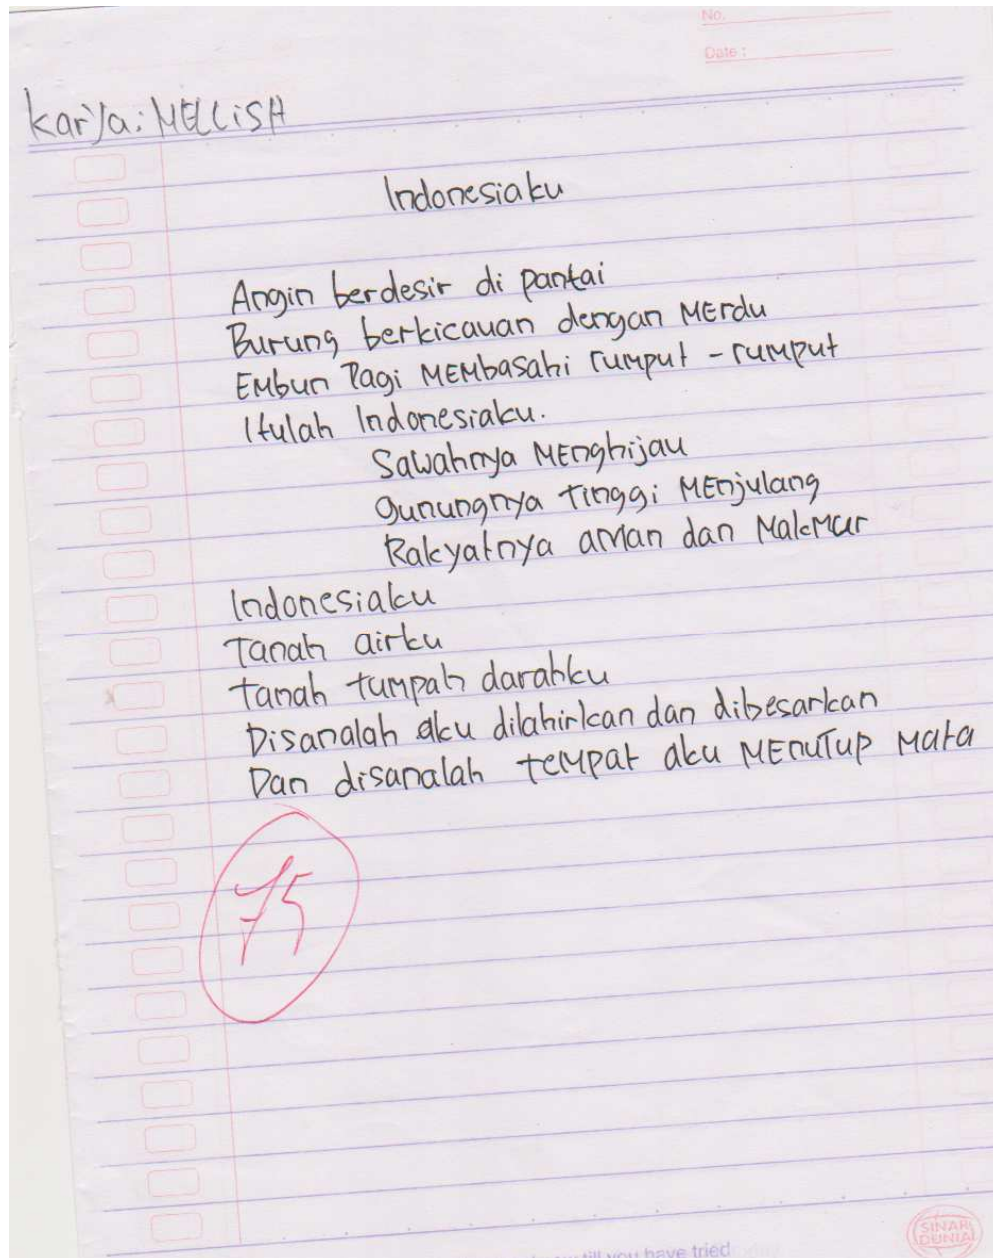 No.
Date :
karya: MELLISA
Indonesiaku
Angin berdesir di pantai
Burung berkicauan dengan Merdu
Embun Pagi MEMbasahi rumput - rumput
Itulah Indonesiaku.
Sawahnya MEnghijau
gunungnya Tinggi MEnjulang
Rakyatnya aman dan Makmur
Indonesiaku
Tanah airku
tanah tumpah darahku
Disanalah aku dilahirkan dan dibesarkan
Dan disanalah tempat aku MEnuTup Mata
75
SINAR
DUNIA
till you have tried